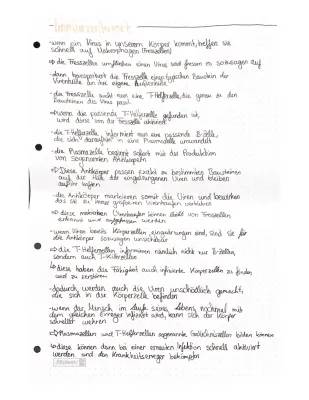 Immunantwort
-wenn ein Virus in unseren Körper kommt, treffen sie
schnell auf Makrophagen (Fresszellen)
⇒ die Fresszellen umfließen einen Virus und fressen es sozusagen auf
-dann transportiert die Fresszelle einen typischen Baustein der
Virenhülle an ihre eigene Außenhülle
-die Fresszelle sucht nun eine T-Helferzelle, die genau zu den
Bausteinen des Virus passt
⇒ Wenn die passende T-Helferzelle gefunden ist,
wird diese von der Fresszelle aktiviert
-die T-Helferzelle informiert nun eine passende B-Zelle,
die sich daraufhin in eine Plasmazelle umwandelt
-die Plasmazelle beginnt sofort mit der Produktion
von sogenannten Antikörpern
⇒ Diese Antikörper passen exakt zu bestimmten Bausteinen
auf der Hülle der eingedrungenen Viren und bleiben
außen haften
-die Antikörper markieren somit die Viren und bewirken
das sie zu einer größeren Virenhaufen verklumpen
⇒ diese Virenhaufen können leicht von Fresszellen
erkannt und werden
-wenn Viren bereits Körperzellen eingedrungen sind, sind sie für
die Antikörper sozusagen unsichtbar
⇒ die T-Helferzellen informieren nämlich nicht nur B-Zellen,
sondern auch T-Killerzellen
↳ diese haben die Fähigkeit auch infizierte Körperzellen zu finden
und zu zerstören
-dadurch werden auch die Viren unschädlich gemacht,
die sich in die Körperzelle befinden
-wenn der Mensch im Laufe seines Lebens nochmal mit
dem gleichen Erreger infiziert wird, kann sich der Körper
schneller wehren
⇒ Plasmazellen und T-Helferzellen sogenannte Gedächtniszellen bilden können
↳ diese können dann bei einer erneuten Infektion schnell aktiviert
werden und den Krankheitserreger bekämpfen